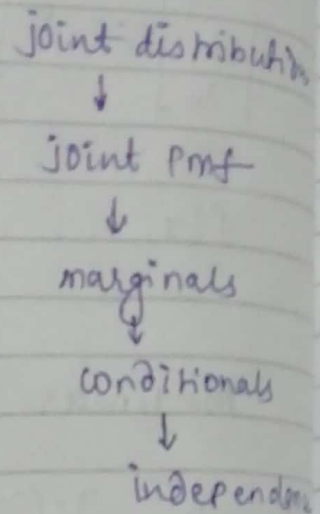 joint distribution
↓
joint pmf
↓
marginals
↓
conditionals
↓
independence